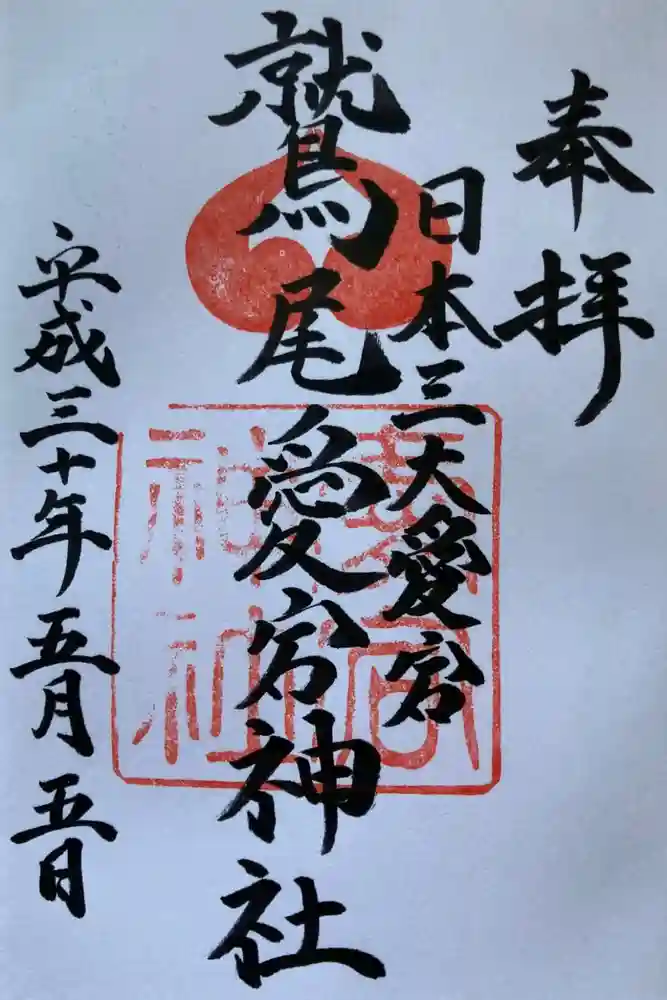 奉拝
日本三大愛宕
鷲尾愛宕神社
平成三十年五月五日